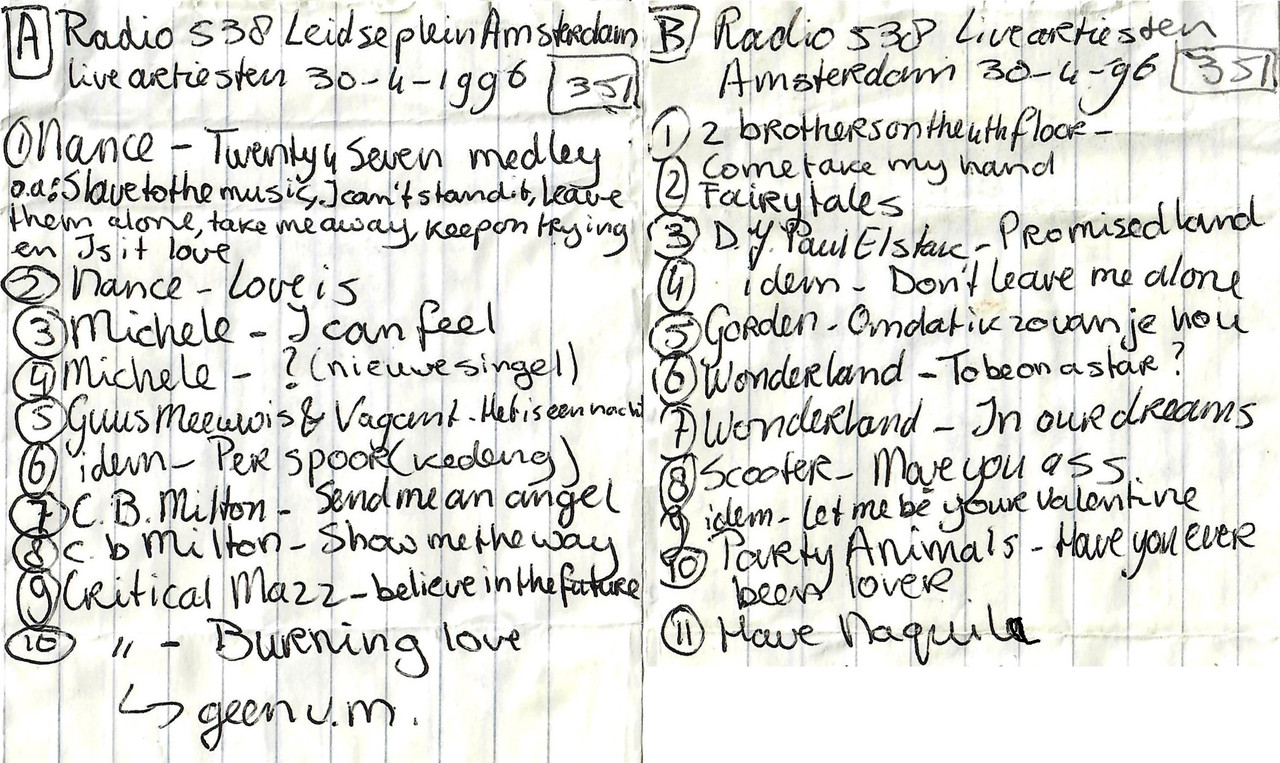 A Radio 538 Leidseplein Amsterdam
live artiesten 30-4-1996 351
1 Nance - Twenty 4 Seven medley
o.a: Slave to the music, I can't stand it, Leave
them alone, take me away, keep on trying
en Is it love
2 Nance - Love is
3 Michele - I can feel
4 Michele - ? (nieuwe singel)
5 Guus Meeuwis & Vagant - Het is een nacht
6 idem - Per spoor (kedeng)
7 C.B. Milton - Send me an angel
8 C.b Milton - Show me the way
9 Critical Mazz - believe in the future
10 " - Burning love
↳ geen v.m.
B Radio 538 Live artiesten
Amsterdam 30-4-96 351
1 2 brothers on the 4th floor -
2 Come take my hand
Fairytales
3 D.J. Paul Elstak - Promised land
4 idem - Don't leave me alone
5 Gorden - Omdat ik zo van je hou
6 Wonderland - To be on a star ?
7 Wonderland - In our dreams
8 Scooter - Move you ass
9 idem - Let me be your valentine
10 Party Animals - Have you ever
been lover
11 Have Naquila